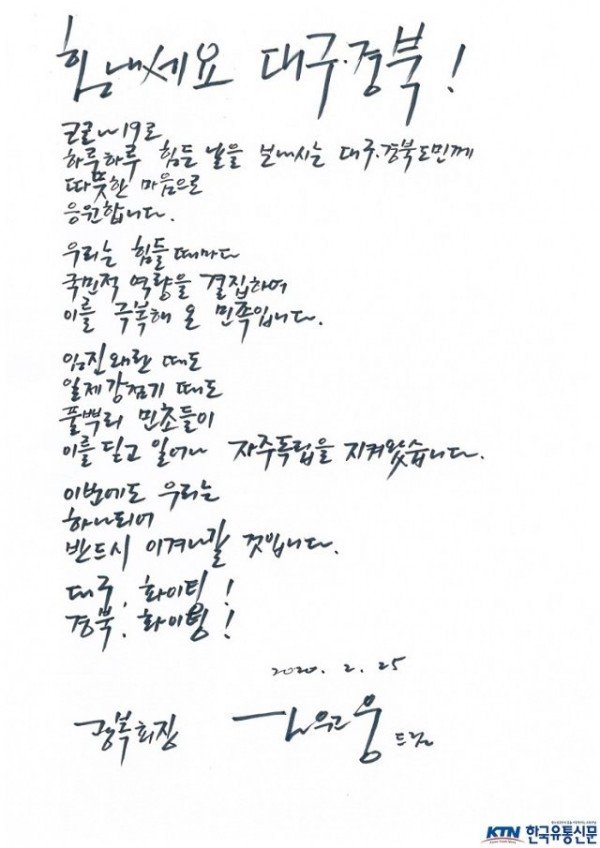 힘내세요 대구·경북!
코로나19로
하루하루 힘든 날을 보내시는 대구·경북도민께
따뜻한 마음으로
응원합니다.
우리는 힘들 때마다
국민적 역량을 결집하여
이를 극복해 온 민족입니다.
임진왜란 때도
일제강점기 때도
풀뿌리 민초들이
이를 딛고 일어나 자주독립을 지켜왔습니다.
이번에도 우리는
하나되어
반드시 이겨나갈 것입니다.
대구, 화이팅!
경북, 화이팅!
2020. 2. 25
광복회장 김원웅 드림
KTN 한국유통신문